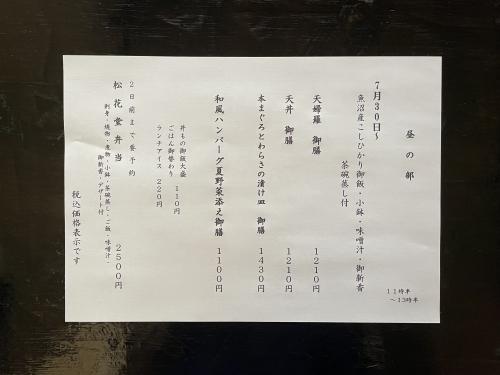 昼の部
11時半
～13時半
7月30日～
魚沼産こしひかり御飯・小鉢・味噌汁・御新香
茶碗蒸し付
天婦羅 御膳 1210円
天丼 御膳 1210円
本まぐろとわらさの漬け皿 御膳 1430円
和風ハンバーグ夏野菜添え御膳 1100円
丼もの御飯大盛 110円
ごはん御替わり
ランチアイス 220円
2日前まで要予約
松花堂弁当 2500円
刺身・焼物・煮物・小鉢・茶碗蒸し・ご飯・味噌汁・
御新香・デザート付
税込価格表示です